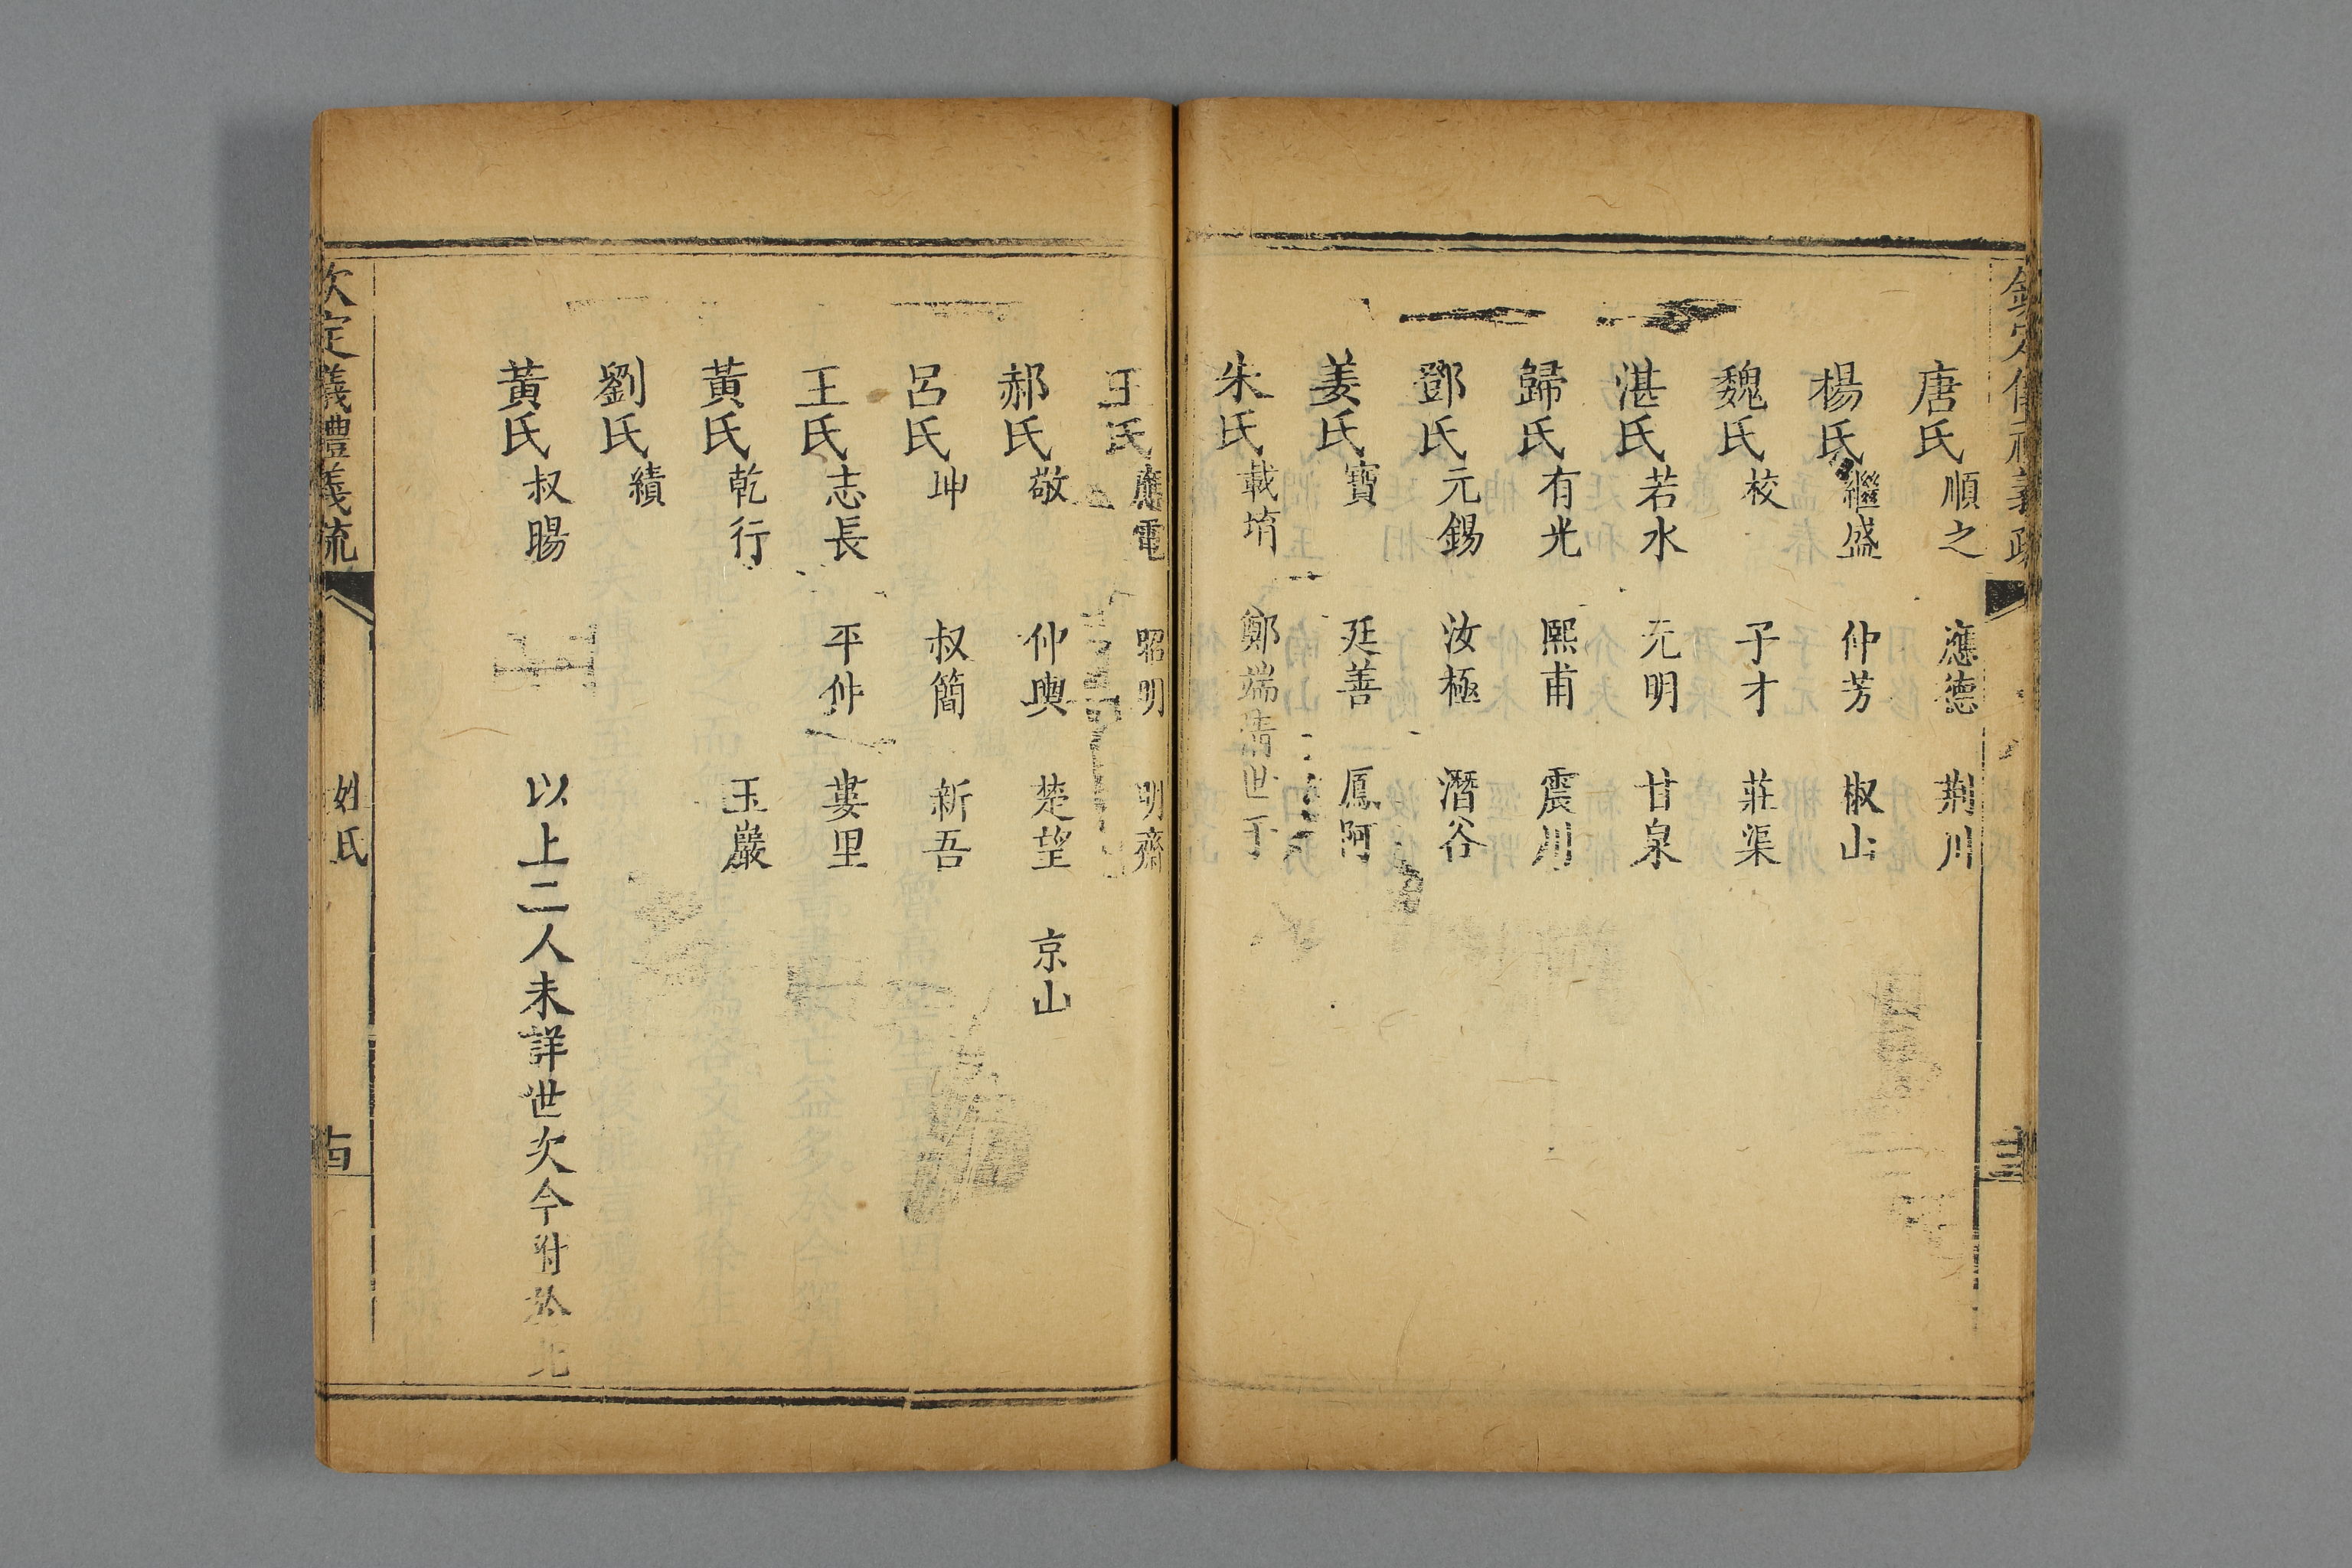 唐氏順之 應德 荆川
楊氏繼盛 仲芳 椒山
魏氏校 子才 莊渠
湛氏若水 元明 甘泉
歸氏有光 熙甫 震川
鄧氏元錫 汝極 潛谷
姜氏寶 廷善 鳳阿
朱氏載堉 鄭端清世子
王氏應電 昭明 明齋
郝氏敬 仲輿 楚望 京山
呂氏坤 叔簡 新吾
王氏志長 平仲 婁里
黃氏乾行 玉巖
劉氏績
黃氏叔暘 以上二人未詳世次今附於此
欽定儀禮義疏 姓氏